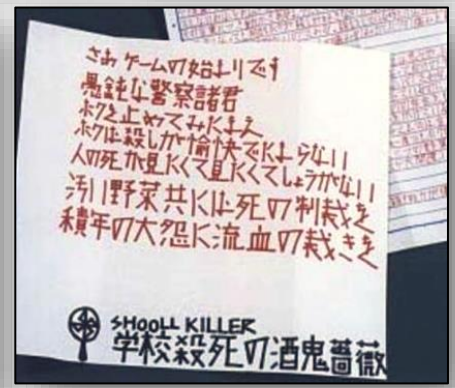 さあ ゲームの始まりです
愚鈍な警察諸君
ボクを止めてみたまえ
ボクは殺しが愉快でたまらない
人の死が見たくて見たくてしょうがない
汚い野菜共には死の制裁を
積年の大怨に流血の裁きを
SHOOLL KILLER
学校殺死の酒鬼薔薇